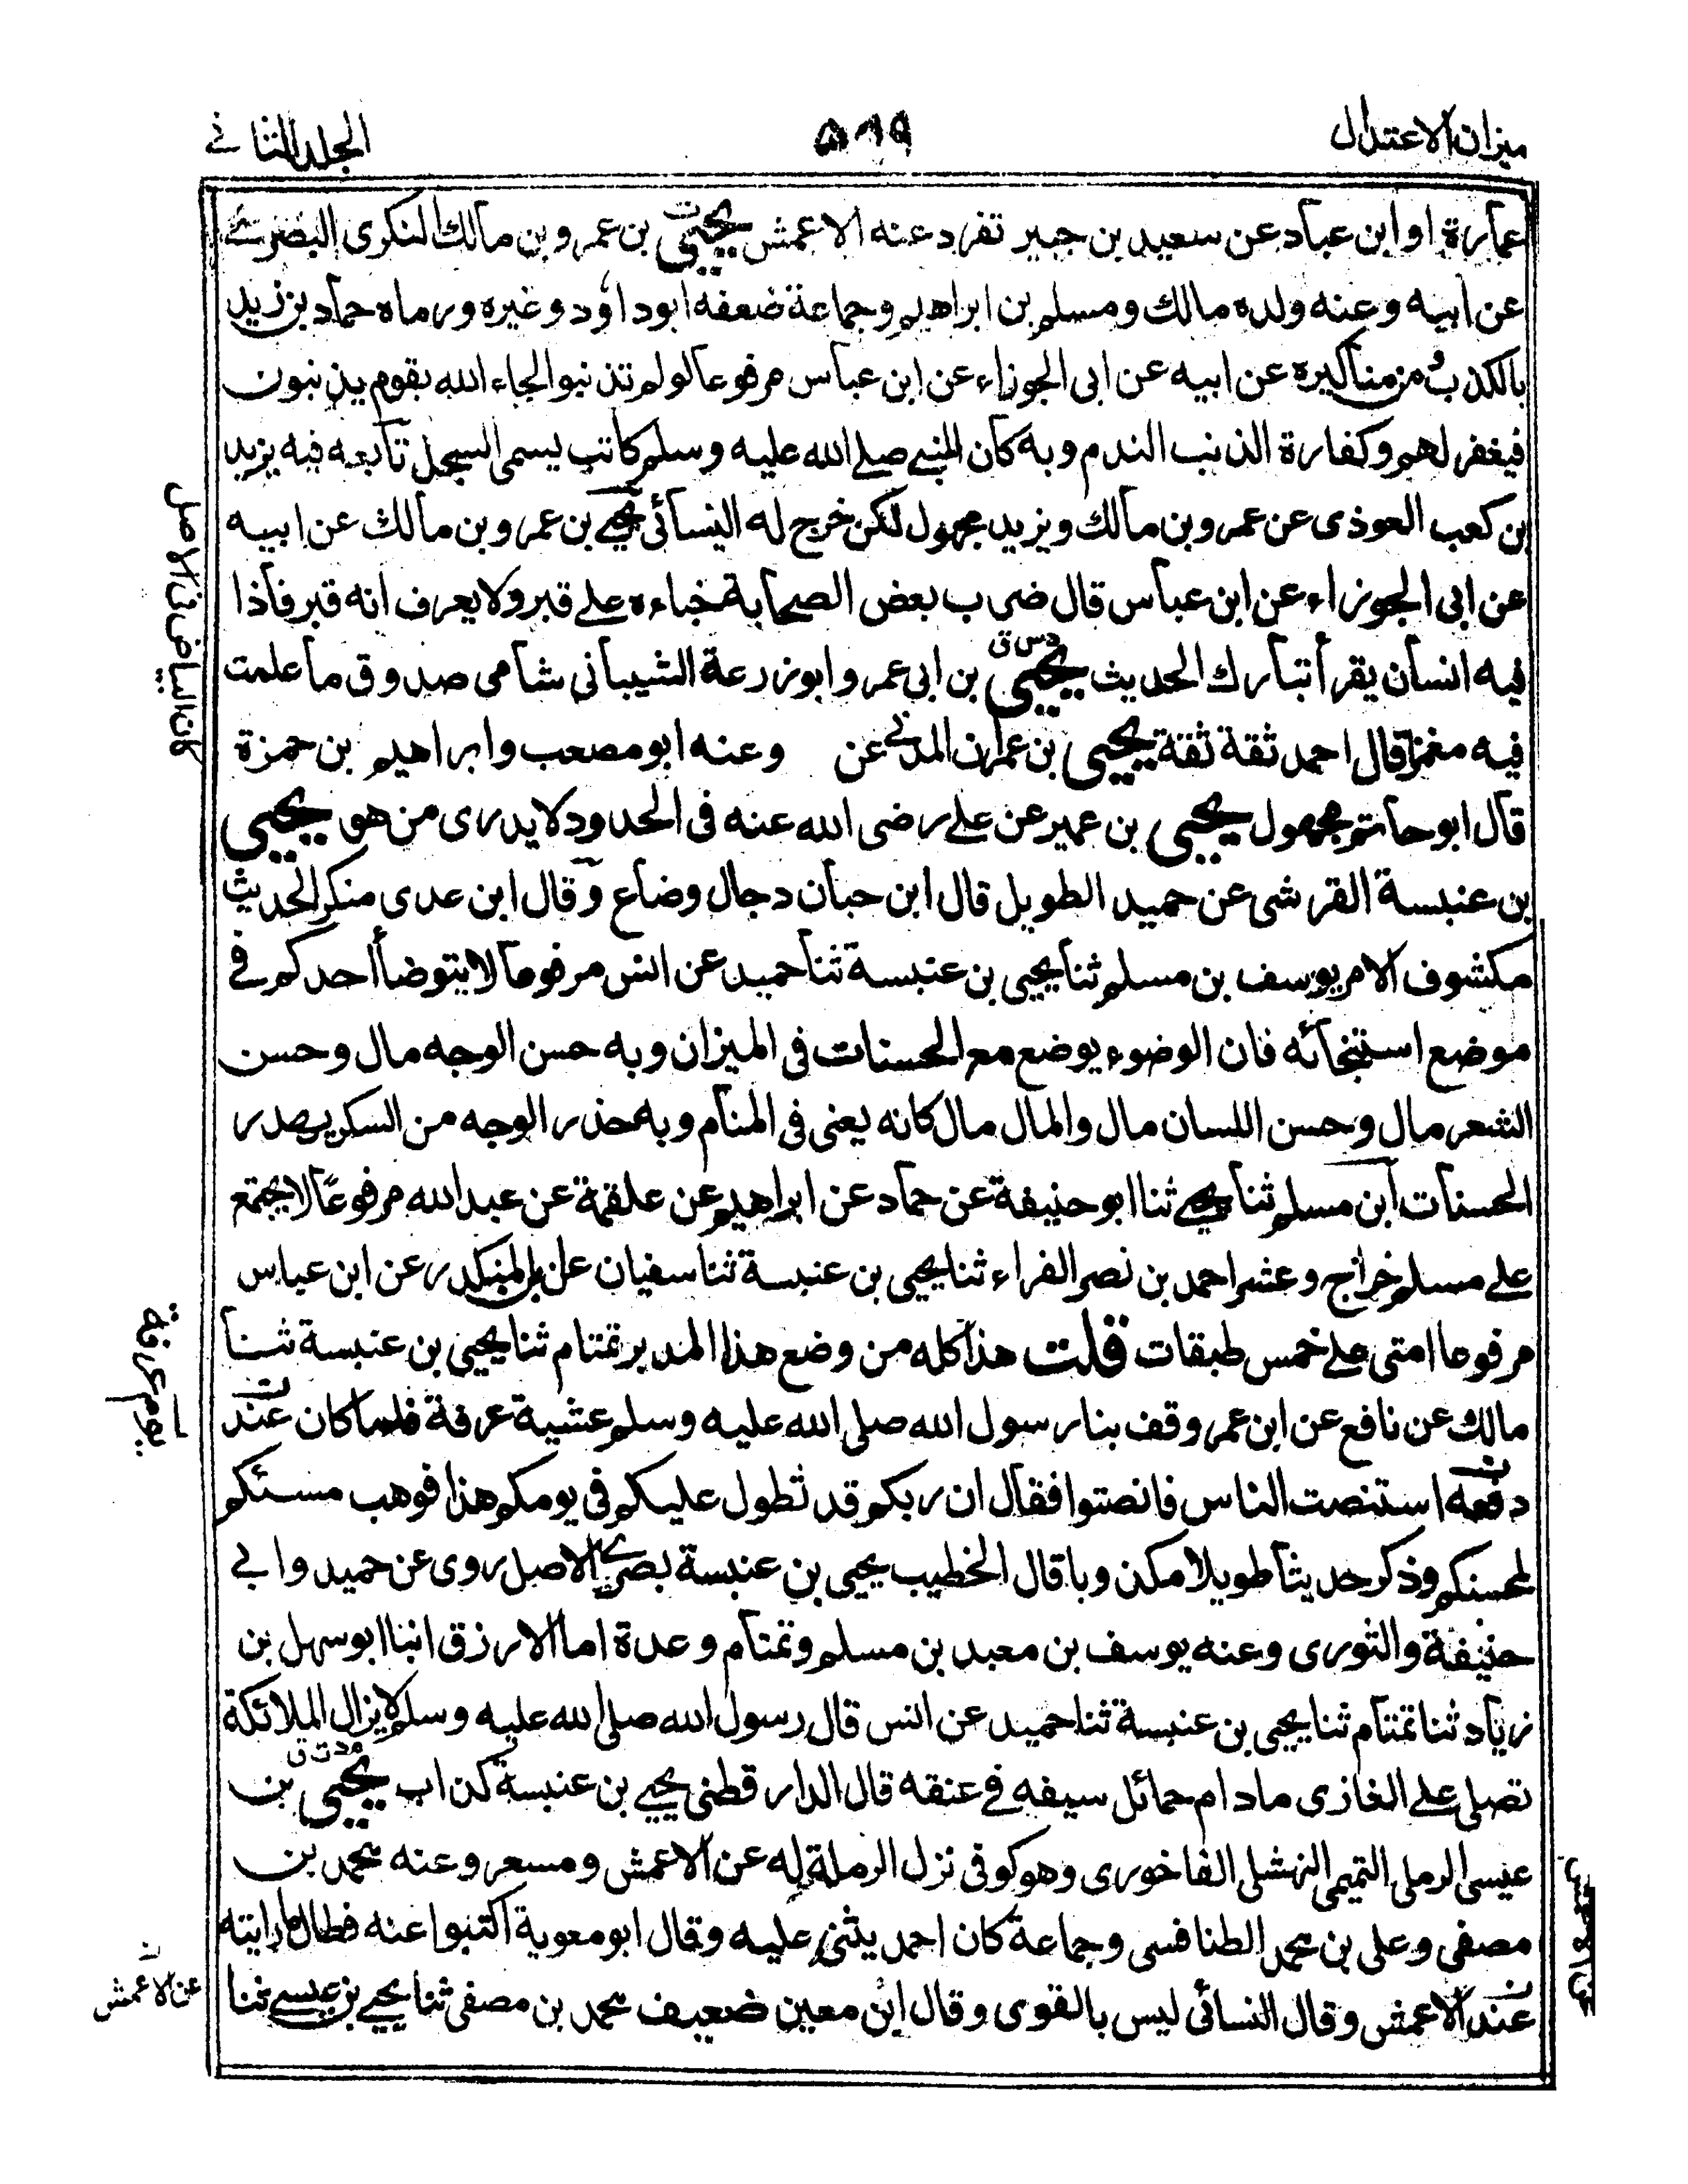 ميزان الاعتدال
الجلد الثاني
عمارة او ابن عباد عن سعيد بن جبير تفرد عنه الاعمش يحيى بن عمرو بن مالك النكرى البصرے
عن ابيه وعنه ولده مالك ومسلم بن ابراهيم وجماعة ضعفه ابو داؤد وغيره ورماه حماد بن زيد
بالكذب ومن مناكيره عن ابيه عن ابى الجوزاء عن ابن عباس مرفوعا لو لم تذنبوا لجاء الله بقوم يذنبون
فيغفر لهم وكفارة الذنب الندم وبه كان للنبے صلے الله عليه وسلم كاتب يسمى السجل تابعه فيه يزيد
بن كعب العوذى عن عمرو بن مالك ويزيد مجهول لكن خرج له النسائى يحيے بن عمرو بن مالك عن ابيه
عن ابى الجوزاء عن ابن عباس قال ضرب بعض الصحابة خباءه علے قبر ولا يعرف انه قبر فاذا
فيه انسان يقرأ تبارك الحديث يحيى بن ابى عمرو ابو زرعة الشيبانى شامى صدوق ما علمت
دس ق
فيه مغمزا قال احمد ثقة ثقة يحيى بن عمران المدنے عن وعنه ابو مصعب وابراهيم بن حمزة
قال ابو حاتم مجهول يحيى بن عمير عن علے رضى الله عنه فى الحدود لا يدرى من هو يحيى
بن عنبسة القرشى عن حميد الطويل قال ابن حبان دجال وضاع وقال ابن عدى منكر الحديث
مكشوف الامر يوسف بن مسلم ثنا يحيى بن عنبسة ثنا حميد عن انس مرفوعا لا يتوضأ احدكم فے
موضع استنجائه فان الوضوء يوضع مع الحسنات فى الميزان وبه حسن الوجه مال وحسن
الشعر مال وحسن اللسان مال والمال مال كانه يعنى فى المنام وبه حذر الوجه من السكر يهدر
الحسنات ابن مسلم ثنا يحيے ثنا ابو حنيفة عن حماد عن ابراهيم عن علقمة عن عبدالله مرفوعًا لا يجتمع
علے مسلم خراج وعشر احمد بن نصر الفراء ثنا يحيى بن عنبسة ثنا سفيان عن ابن المنكدر عن ابن عباس
مرفوعا امتى علے خمس طبقات قلت هذا كله من وضع هذا المدبر تمتام ثنا يحيى بن عنبسة ثنا
مالك عن نافع عن ابن عمر وقف بنا رسول الله صلى الله عليه وسلم عشية عرفة فلما كان عند
دفعه استنصت الناس فانصتوا فقال ان ربكم قد تطول عليكم فى يومكم هذا فوهب مسئكم
لمحسنكم وذكر حديثا طويلا مكذوبا قال الخطيب يحيى بن عنبسة بصرے الاصل روى عن حميد وابے
حنيفة والثورى وعنه يوسف بن معبد بن مسلم وتمتام وعدة اما الارزق انبا ابو سهل بن
زياد ثنا تمتام ثنا يحيى بن عنبسة ثنا حميد عن انس قال رسول الله صلى الله عليه وسلم لا يزال الملائكة
تصلى علے الغازى مادام حمائل سيفه فے عنقه قال الدارقطنى يحيے بن عنبسة كذاب يحيى بن
عيسى الرملى التميمى النهشلى الفاخورى وهو كوفى نزل الرملة له عن الاعمش ومسعر وعنه محمد بن
مصفى وعلى بن محمد الطنافسى وجماعة كان احمد يثنى عليه وقال ابو معوية اكتبوا عنه فطال ما رايته
عند الاعمش وقال النسائى ليس بالقوى وقال ابن معين ضعيف محمد بن مصفى ثنا يحيے بن عيسے ثنا
كان البياض فى الاصل
يوم عرفة
عن الاعمش